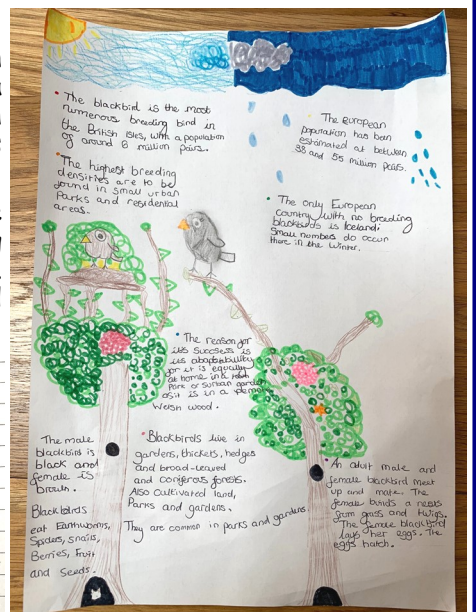 • The blackbird is the most
numerous breeding bird in
the British Isles, with a population
of around 6 million pairs.
• The highest breeding
densities are to be
found in small urban
Parks and residential
areas.
• The European
population has been
estimated at between
38 and 55 million pairs.
• The only European
Country with no breeding
blackbirds is Iceland;
Small numbers do occur
there in the winter.
• The reason for
its success is
its adaptability
for it is equally
at home in a
Park or suburban garden
as it is in a remote
Welsh wood.
The male
blackbird is
black and
female is
brown.
Blackbirds
eat Earthworms,
Spiders, snails,
Berries, Fruit
and Seeds.
• Blackbirds live in
gardens, thickets, hedges
and broad-leaved
and coniferous forests.
Also cultivated land,
Parks and gardens.
They are common in parks and gardens.
• An adult male and
female blackbird meet
up and mate. The
female builds a nests
from grass and twigs.
The female blackbird
lays her eggs. The
eggs hatch.